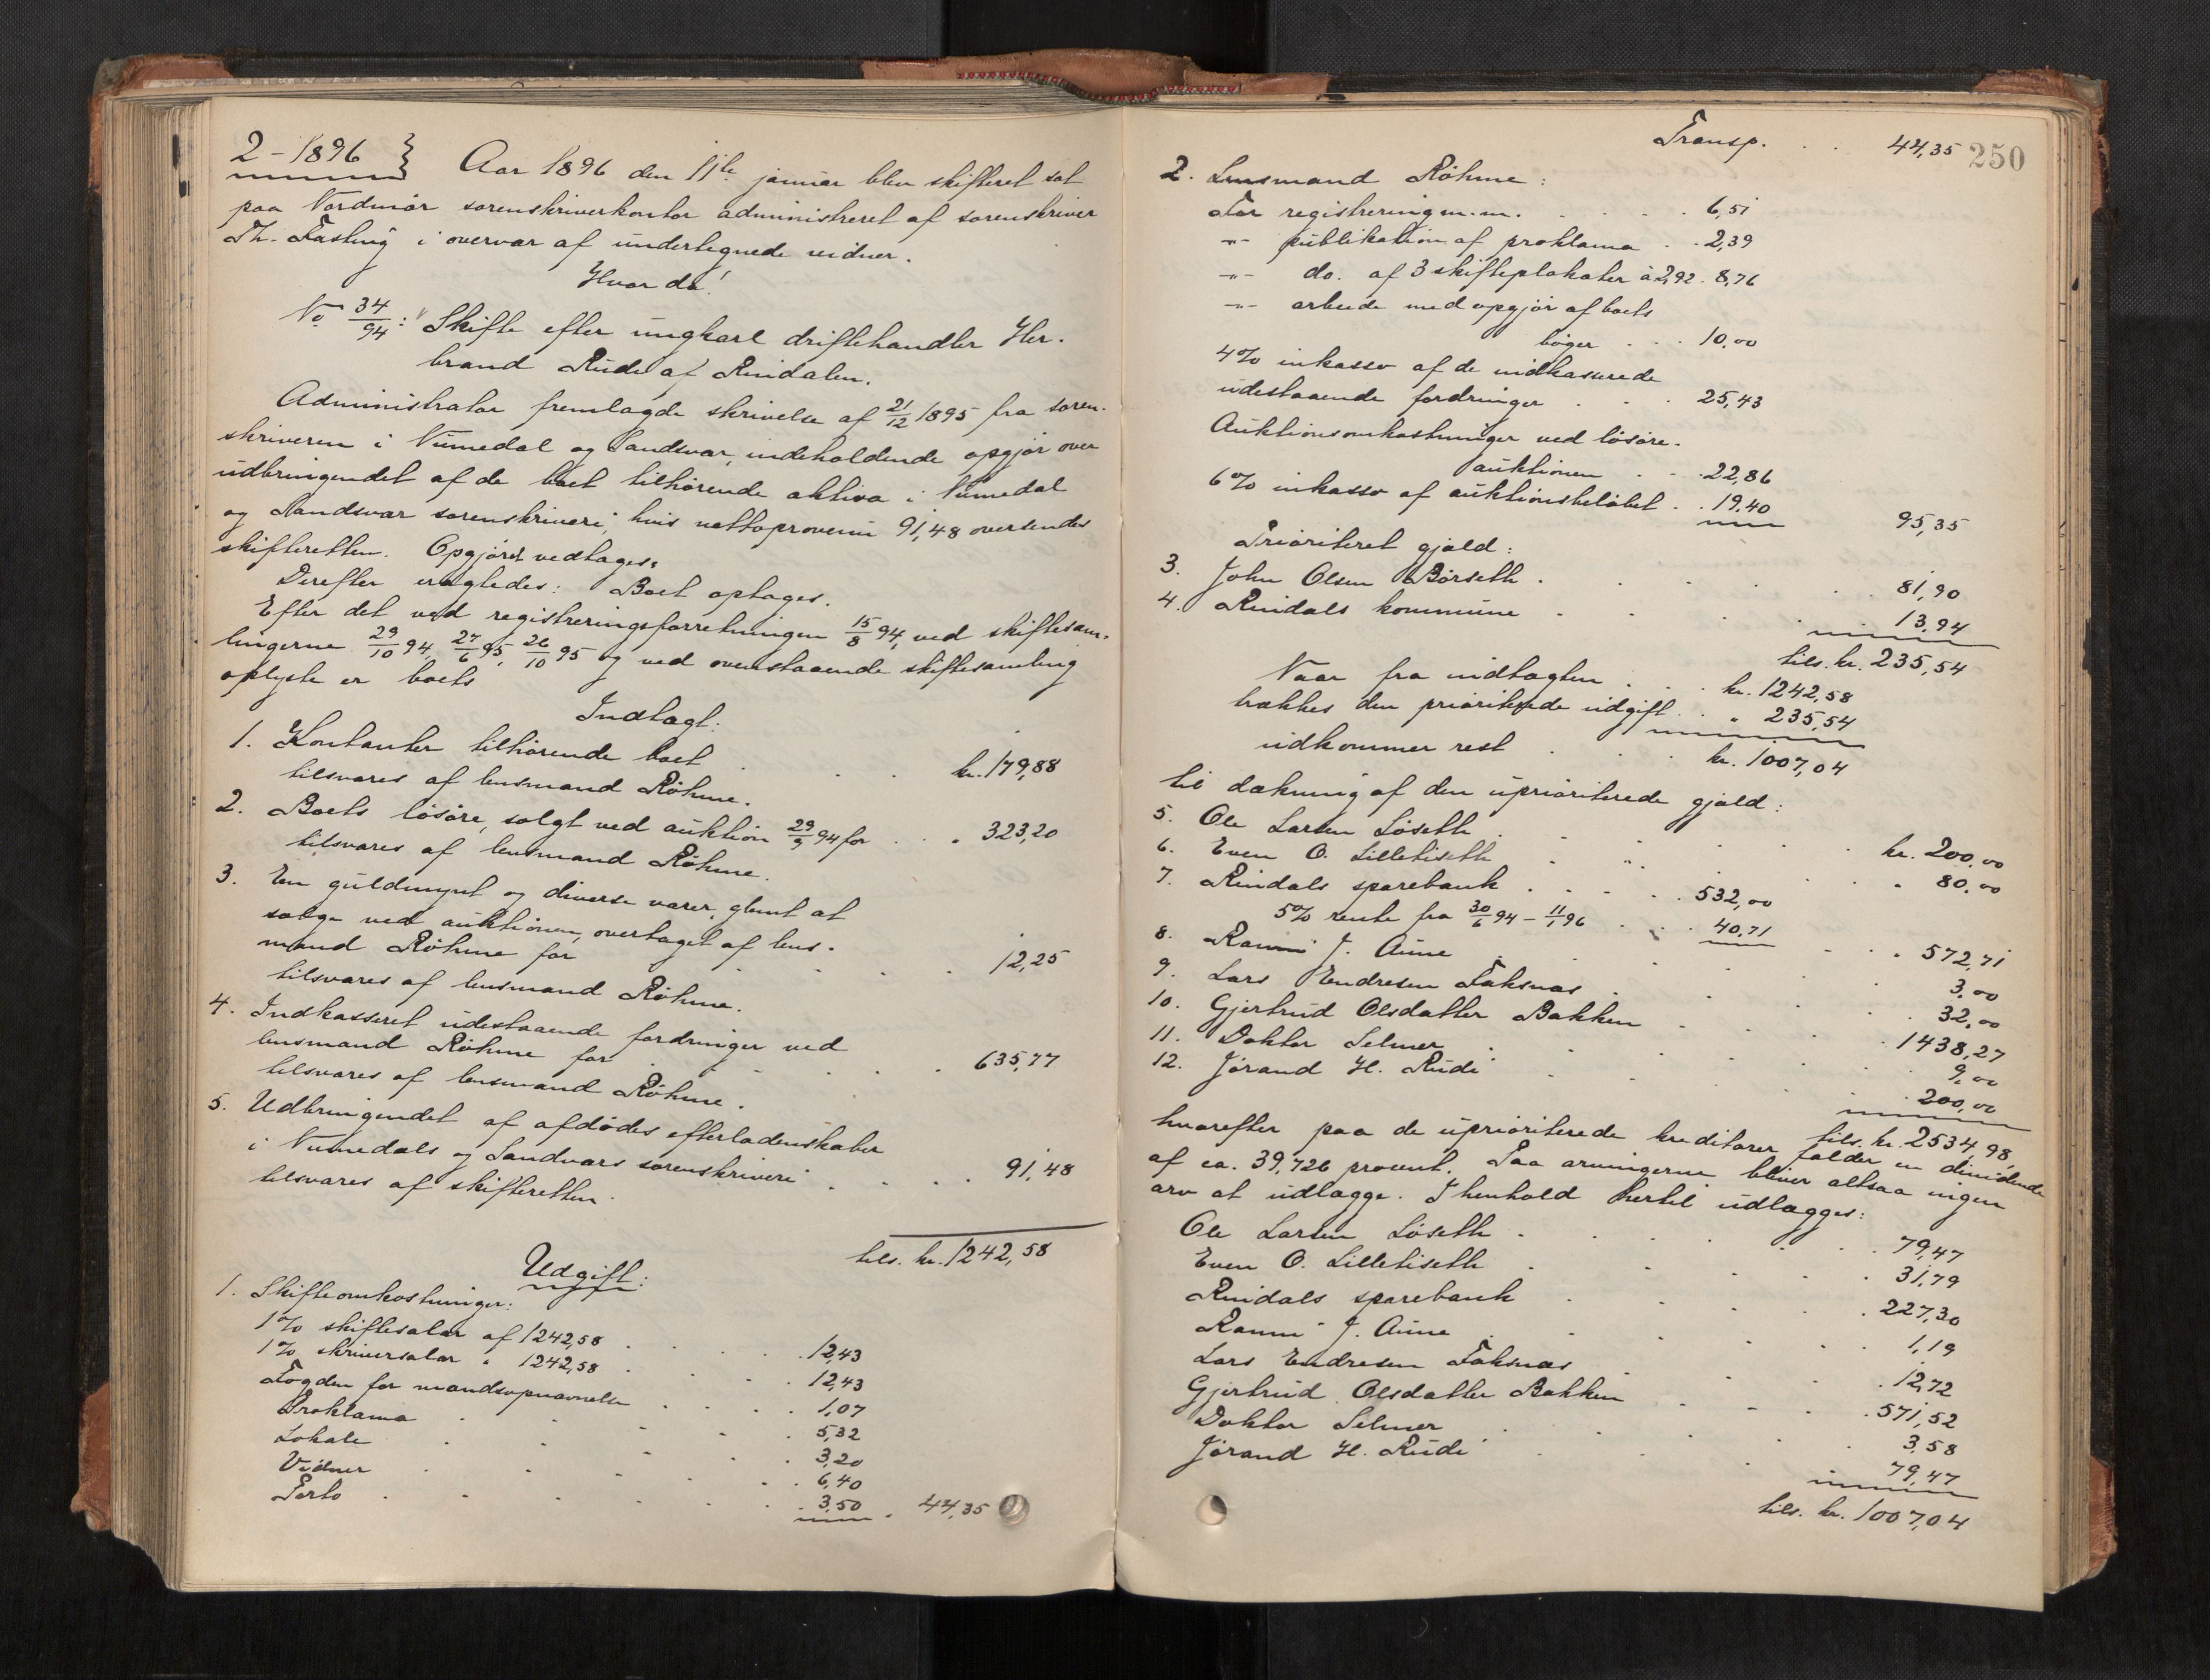 2 - 1896
Aar 1896 den 11te januar blev skifteret sat
paa Nordmør sorenskriverkontor administreret af sorenskriver
Th. Fasting i overvær af undertegnede vidner.
Hvor da!
No 34/94: Skifte efter ungkarl driftehandler Her-
brand Rudi af Rindalen.
Administrator fremlagde skrivelse af 21/12 1895 fra soren-
skriveren i Numedal og Sandsvær, indeholdende opgjør over
udbringendet af de boet tilhørende aktiva i Numedal
og Sandsvær sorenskriveri, hvis nettoprovenu 91,48 oversendes
skifteretten. Opgjøret vedtages.
Derefter eragtedes: Boet optages.
Efter det ved registreringsforretningen 15/8 94, ved skiftesam-
lingerne 29/10 94, 27/6 95, 26/10 95 og ved ovenstaaende skiftesamling
oplyste er boets
Indtægt:
1. Kontanter tilhørende boet . . . kr. 179,88
tilsvares af lensmand Røhme.
2. Boets løsøre, solgt ved auktion 29/9 94 for . . " 323,20
tilsvares af lensmand Røhme.
3. En guldmynt og diverse varer, glemt at
sælge ved auktionen, overtaget af lens-
mand Røhme for . . . . 12,25
tilsvares af lensmand Røhme.
4. Indkasseret udestaaende fordringer ved
lensmand Røhme for . . . . 635,77
tilsvares af lensmand Røhme.
5. Udbringendet af afdødes efterladenskaber
i Numedals og Sandsværs sorenskriveri . . . . 91,48
tilsvares af skifteretten.
tils. kr. 1242,58
Udgift:
1. Skifteomkostninger:
1% skiftesalær af 1242,58 . . . 12,43
1% skriversalær " 1242,58 . . . 12,43
Fogden for mandsopnævnelse . . . . 1,07
Proklama . . . . 5,32
Lokale . . . . 3,20
Vidner . . . . 6,40
Porto . . . . 3,50 . 44,35
Transp. . . 44,35
250
2. Lensmand Røhme:
For registrering m.m. . . . . 6,51
-"- publikation af proklama . . 2,39
-"- do. af 3 skifteplakater à 2,92 . 8,76
-"- arbeide med opgjør af boets
bøger . . . 10,00
4% inkasso af de indkasserede
udestaaende fordringer . . . 25,43
Auktionsomkostninger ved løsøre-
auktionen . . . 22,86
6% inkasso af auktionsbeløbet . . 19,40 95,35
Prioriteret gjæld:
3. John Olsen Børseth . . . . 81,90
4. Rindals kommune . . . . 13,94
tils. kr. 235,54
Naar fra indtægten . . . kr. 1242,58
trækkes den prioriterede udgift . . " 235,54
udkommer rest . . . kr. 1007,04
til dækning af den uprioriterede gjæld:
5. Ole Larsen Løseth . . . . kr. 200,00
6. Even O. Lilleliseth . . . . " 80,00
7. Rindals sparebank . . . . 532,00
5% rente fra 30/6 94 - 11/1 96 . . . 40,71 . . " 572,71
8. J. Aune . . . . 3,00
9. Lars Endresen Faksnæs . . . . 32,00
10. Gjertrud Olsdatter Bakken . . . . 1438,27
11. Doktor Selmer . . . . 9,00
12. Jørand H. Rudi . . . . 200,00
tils. kr. 2534,98,
hvorefter paa de uprioriterede kreditorer falder en dividende
af ca. 39,726 procent. Paa arvingerne bliver altsaa ingen
arv at udlægge. I henhold hertil udlægges:
Ole Larsen Løseth . . . . 79,47
Even O. Lilleliseth . . . . 31,79
Rindals sparebank . . . . 227,30
J. Aune . . . . 1,19
Lars Endresen Faksnæs . . . . 12,72
Gjertrud Olsdatter Bakken . . . . 571,52
Doktor Selmer . . . . 3,58
Jørand H. Rudi . . . . 79,47
tils. kr. 1007,04